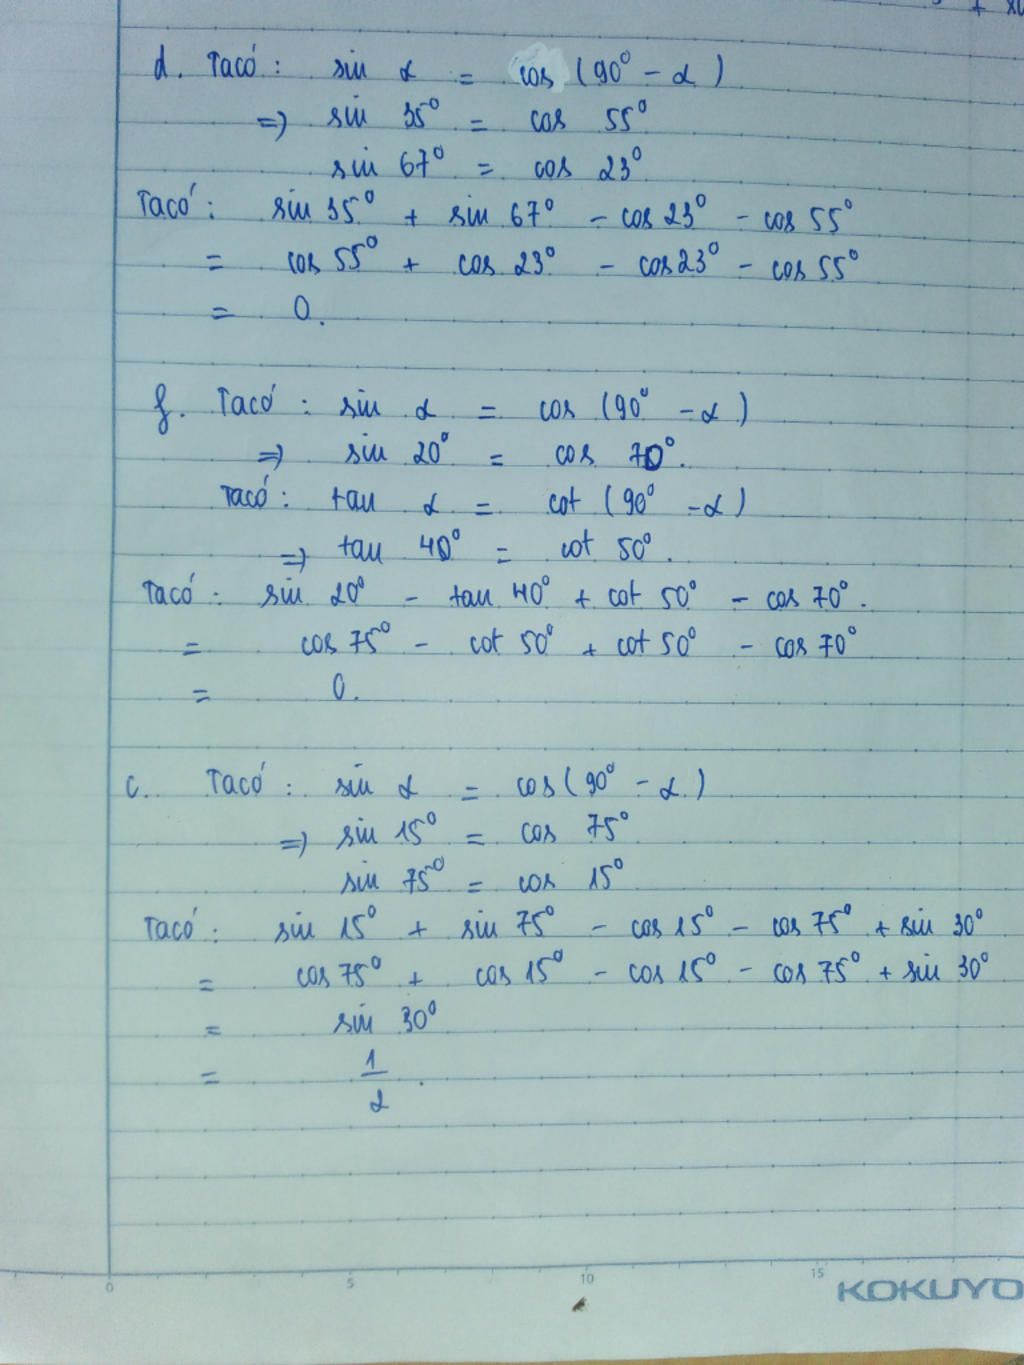 d. Ta có : sin α = cos (90° - α)
=> sin 35° = cos 55°
sin 67° = cos 23°
Ta có : sin 35° + sin 67° - cos 23° - cos 55°
= cos 55° + cos 23° - cos 23° - cos 55°
= 0.
f. Ta có : sin α = cos (90° - α)
=> sin 20° = cos 70°.
Ta có : tan α = cot (90° - α)
=> tan 40° = cot 50°.
Ta có : sin 20° - tan 40° + cot 50° - cos 70°.
= cos 75° - cot 50° + cot 50° - cos 70°
= 0.
c. Ta có : sin α = cos (90° - α)
=> sin 15° = cos 75°
sin 75° = cos 15°
Ta có : sin 15° + sin 75° - cos 15° - cos 75° + sin 30°
= cos 75° + cos 15° - cos 15° - cos 75° + sin 30°
= sin 30°
= 1/2.
0 5 10 15 KOKUYO